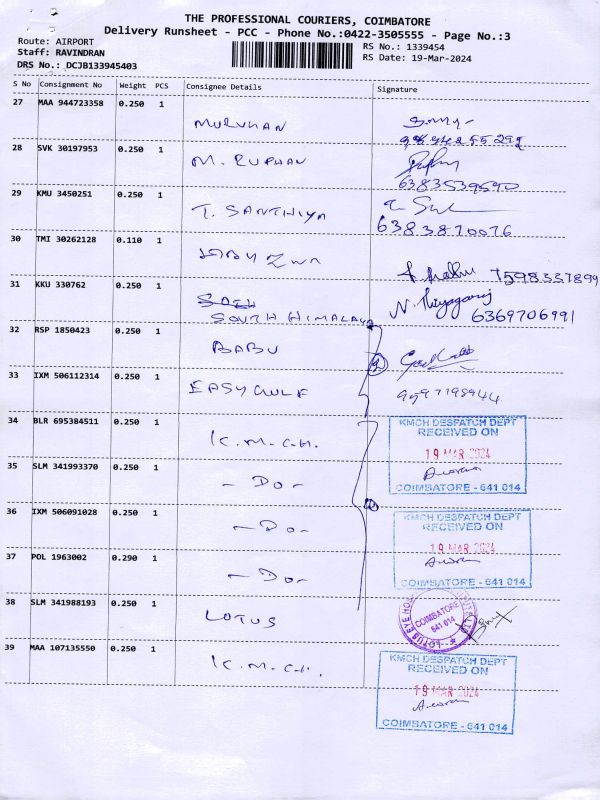 THE PROFESSIONAL COURIERS, COIMBATORE
Delivery Runsheet - PCC - Phone No.:0422-3505555 - Page No.:3
Route: AIRPORT
Staff: RAVINDRAN
DRS No.: DCJB133945403
RS No.: 1339454
RS Date: 19-Mar-2024
S No Consignment No Weight PCS Consignee Details Signature
27 MAA 944723358 0.250 1 MURUHAN
28 SVK 30197953 0.250 1 M. RUPHAN
6383539590
29 KMU 3450251 0.250 1 T. SANTHIYA
6383870076
30 TMI 30262128 0.110 1
7598337899
31 KKU 330762 0.250 1
SOUTH HIMALAYA
N. Thiyagaraj 6369706991
32 RSP 1850423 0.250 1 BABU
33 IXM 506112314 0.250 1 EASY GULF
9597798944
34 BLR 695384511 0.250 1 K.M.C.H.
KMCH DESPATCH DEPT
RECEIVED ON
19 MAR 2024
COIMBATORE - 641 014
35 SLM 341993370 0.250 1 - DO -
36 IXM 506091028 0.250 1 - DO -
KMCH DESPATCH DEPT
RECEIVED ON
19 MAR 2024
COIMBATORE - 641 014
37 POL 1963002 0.290 1 - DO -
38 SLM 341988193 0.250 1 LOTUS
COIMBATORE
641 014
LOTUS EYE
39 MAA 107135550 0.250 1 K.M.C.H.
KMCH DESPATCH DEPT
RECEIVED ON
19 MAR 2024
COIMBATORE - 641 014